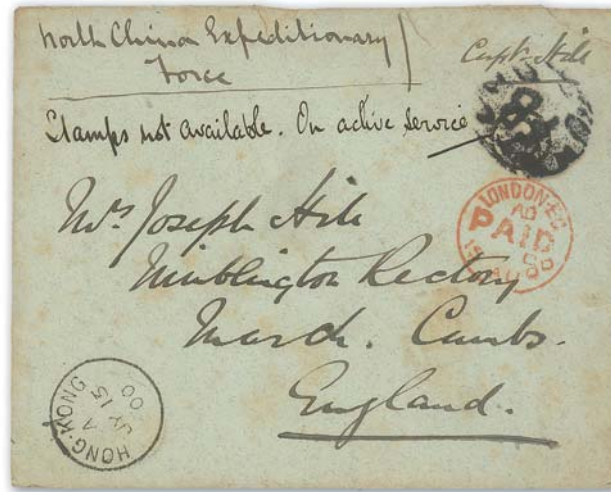 North China Expeditionary
Force
Capt. Hill
Stamps not available. On active service
Mrs Joseph Hill
Rectory
March. Cambs.
England.
LONDON.E.C
PAID
15
AU 00
HONG-KONG
A
JY 13
00